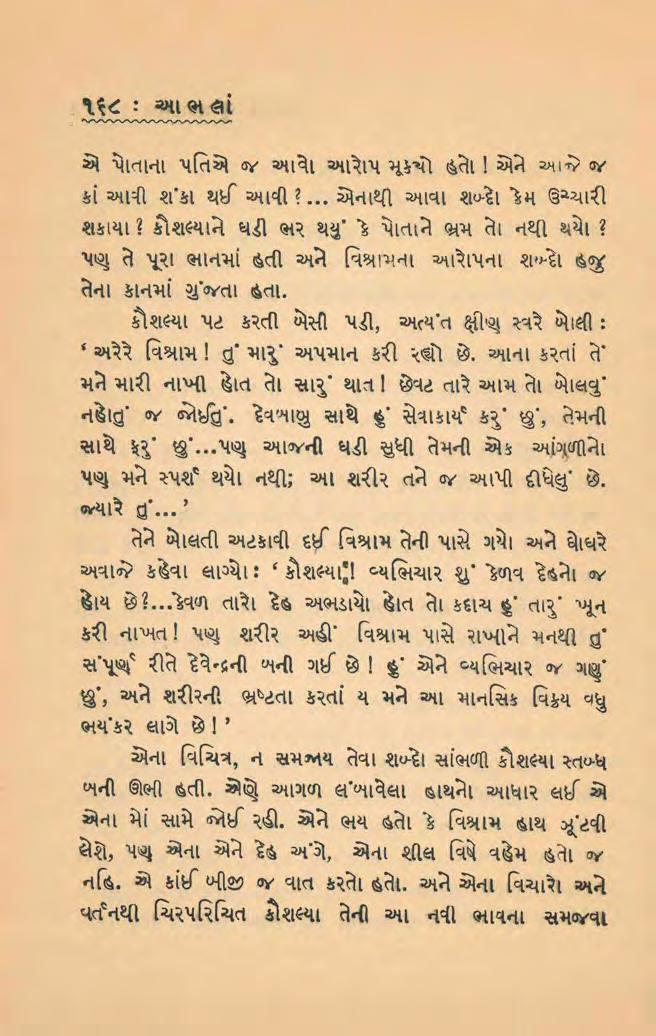 ૧૬૮ : આ ભ લાં
એ પોતાના પતિએ જ આવો આરોપ મૂક્યો હતો ! એને આજે જ
કાં આવી શંકા થઈ આવી ?... એનાથી આવા શબ્દો કેમ ઉચ્ચારી
શકાયા ? કૌશલ્યાને ઘડી ભર થયું કે પોતાને ભ્રમ તો નથી થયો ?
પણ તે પૂરા ભાનમાં હતી અને વિશ્રામના આરોપના શબ્દો હજુ
તેના કાનમાં ગુંજતા હતા.
કૌશલ્યા પટ કરતી બેસી પડી, અત્યંત ક્ષીણ સ્વરે બોલી :
‘ અરેરે વિશ્રામ ! તું મારું અપમાન કરી રહ્યો છે. આના કરતાં તેં
મને મારી નાખી હોત તો સારું થાત ! છેવટ તારે આમ તો બોલવું
નહોતું જ જોઈતું. દેવબાબુ સાથે હું સેવાકાર્ય કરું છું, તેમની
સાથે ફરું છું...પણ આજની ઘડી સુધી તેમની એક આંગળીનો
પણ મને સ્પર્શ થયો નથી; આ શરીર તને જ આપી દીધેલું છે.
જ્યારે તું... ’
તેને બોલતી અટકાવી દઈ વિશ્રામ તેની પાસે ગયો અને ઘોઘરે
અવાજે કહેવા લાગ્યો : ‘ કૌશલ્યા ! વ્યભિચાર શું કેળવ દેહનો જ
હોય છે ?...કેવળ તારો દેહ અભડાયો હોત તો કદાચ હું તારું ખૂન
કરી નાખત ! પણ શરીર અહીં વિશ્રામ પાસે રાખીને મનથી તું
સંપૂર્ણ રીતે દેવેન્દ્રની બની ગઈ છે ! હું એને વ્યભિચાર જ ગણું
છું, અને શરીરની ભ્રષ્ટતા કરતાં ય મને આ માનસિક વિક્રય વધુ
ભયંકર લાગે છે ! ’
એના વિચિત્ર, ન સમજાય તેવા શબ્દો સાંભળી કૌશલ્યા સ્તબ્ધ
બની ઊભી હતી. એણે આગળ લંબાવેલા હાથનો આધાર લઈ એ
એના મોં સામે જોઈ રહી. એને ભય હતો કે વિશ્રામ હાથ ઝૂંટવી
લેશે, પણ એના એને દેહ અંગે, એના શીલ વિષે વહેમ હતો જ
નહિ. એ કાંઈ બીજી જ વાત કરતો હતો. અને એના વિચારો અને
વર્તનથી ચિરપરિચિત કૌશલ્યા તેની આ નવી ભાવના સમજવા